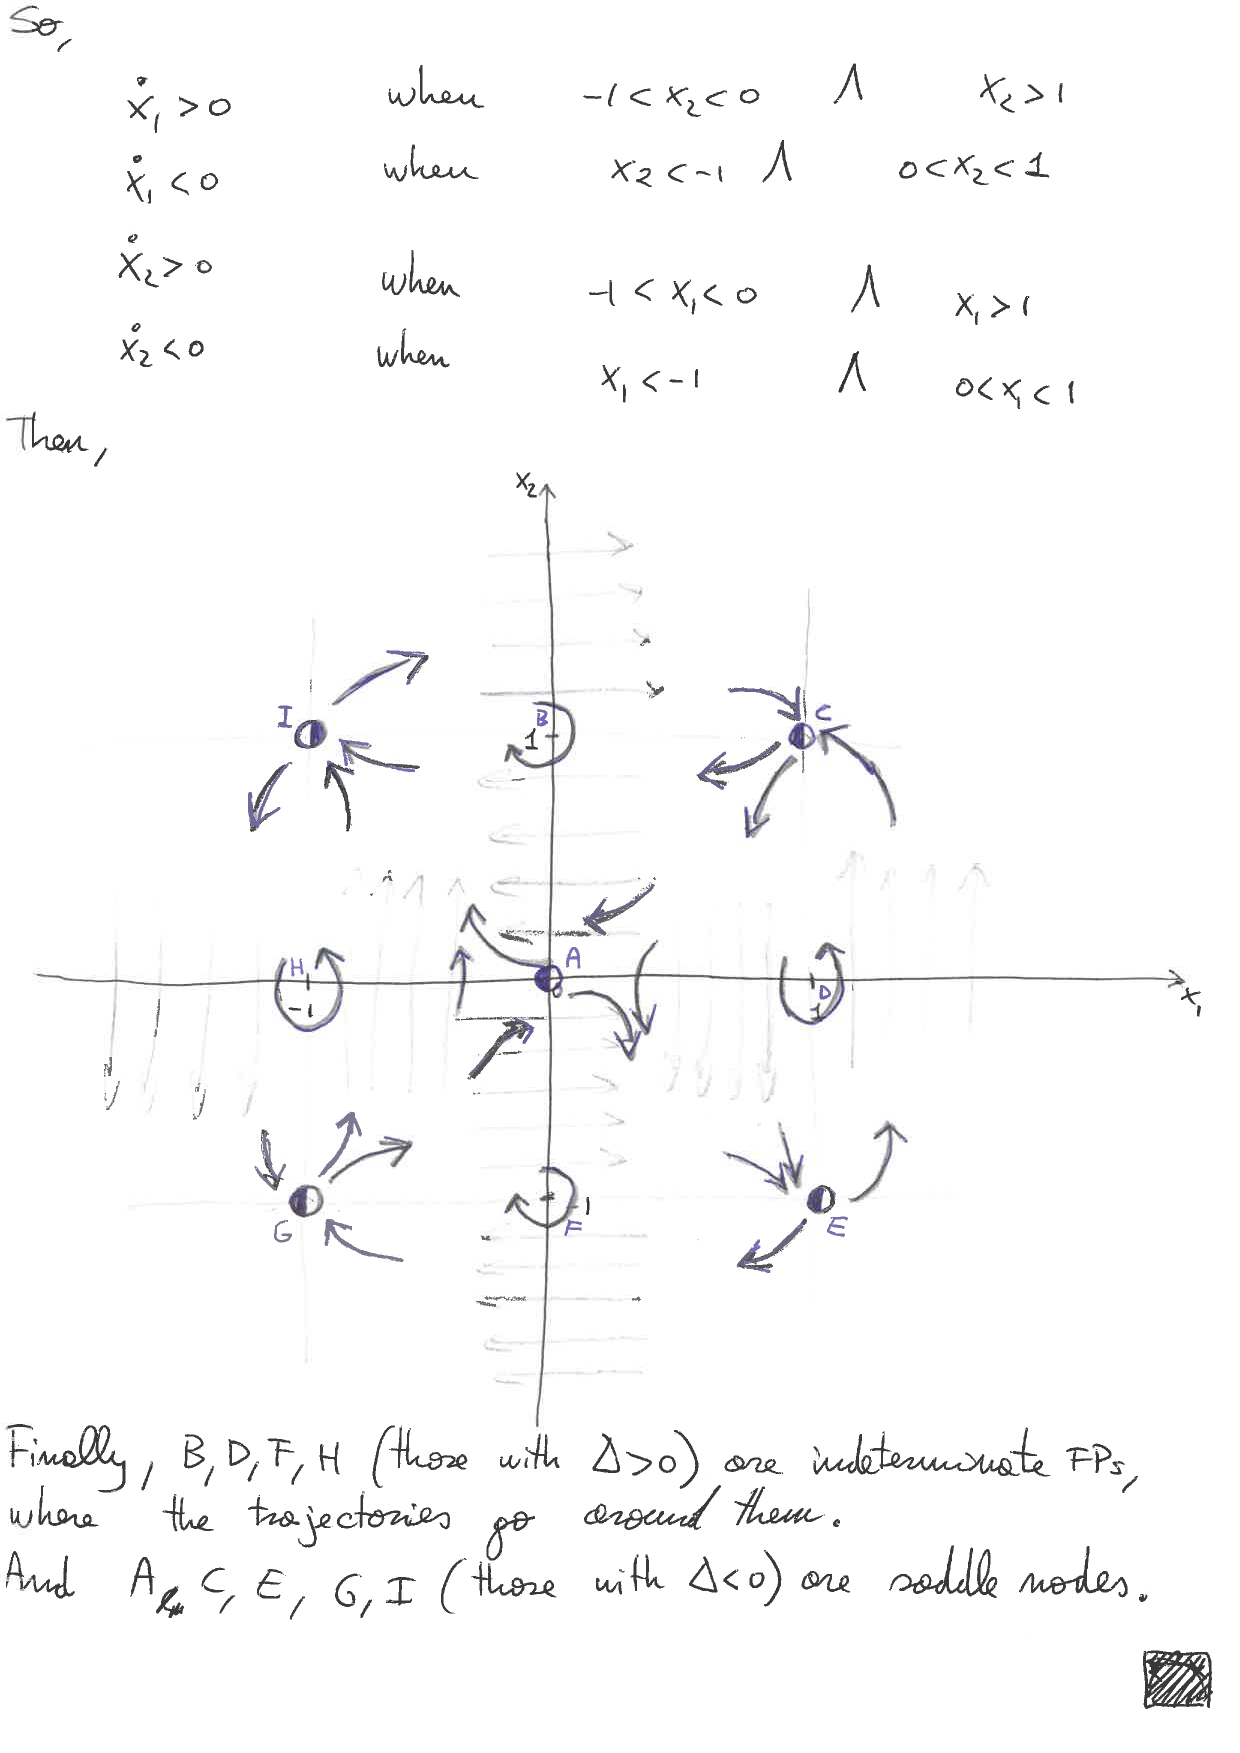 So,
ẋ₁ > 0 when -1 < x₂ < 0 ∧ x₂ > 1
ẋ₁ < 0 when x₂ < -1 ∧ 0 < x₂ < 1
ẋ₂ > 0 when -1 < x₁ < 0 ∧ x₁ > 1
ẋ₂ < 0 when x₁ < -1 ∧ 0 < x₁ < 1
Then,
x₂
I B C
1
H A D x₁
-1 0 1
G F E
-1
Finally, B, D, F, H (those with Δ>0) are indeterminate FPs,
where the trajectories go around them.
And A, C, E, G, I (those with Δ<0) are saddle nodes.